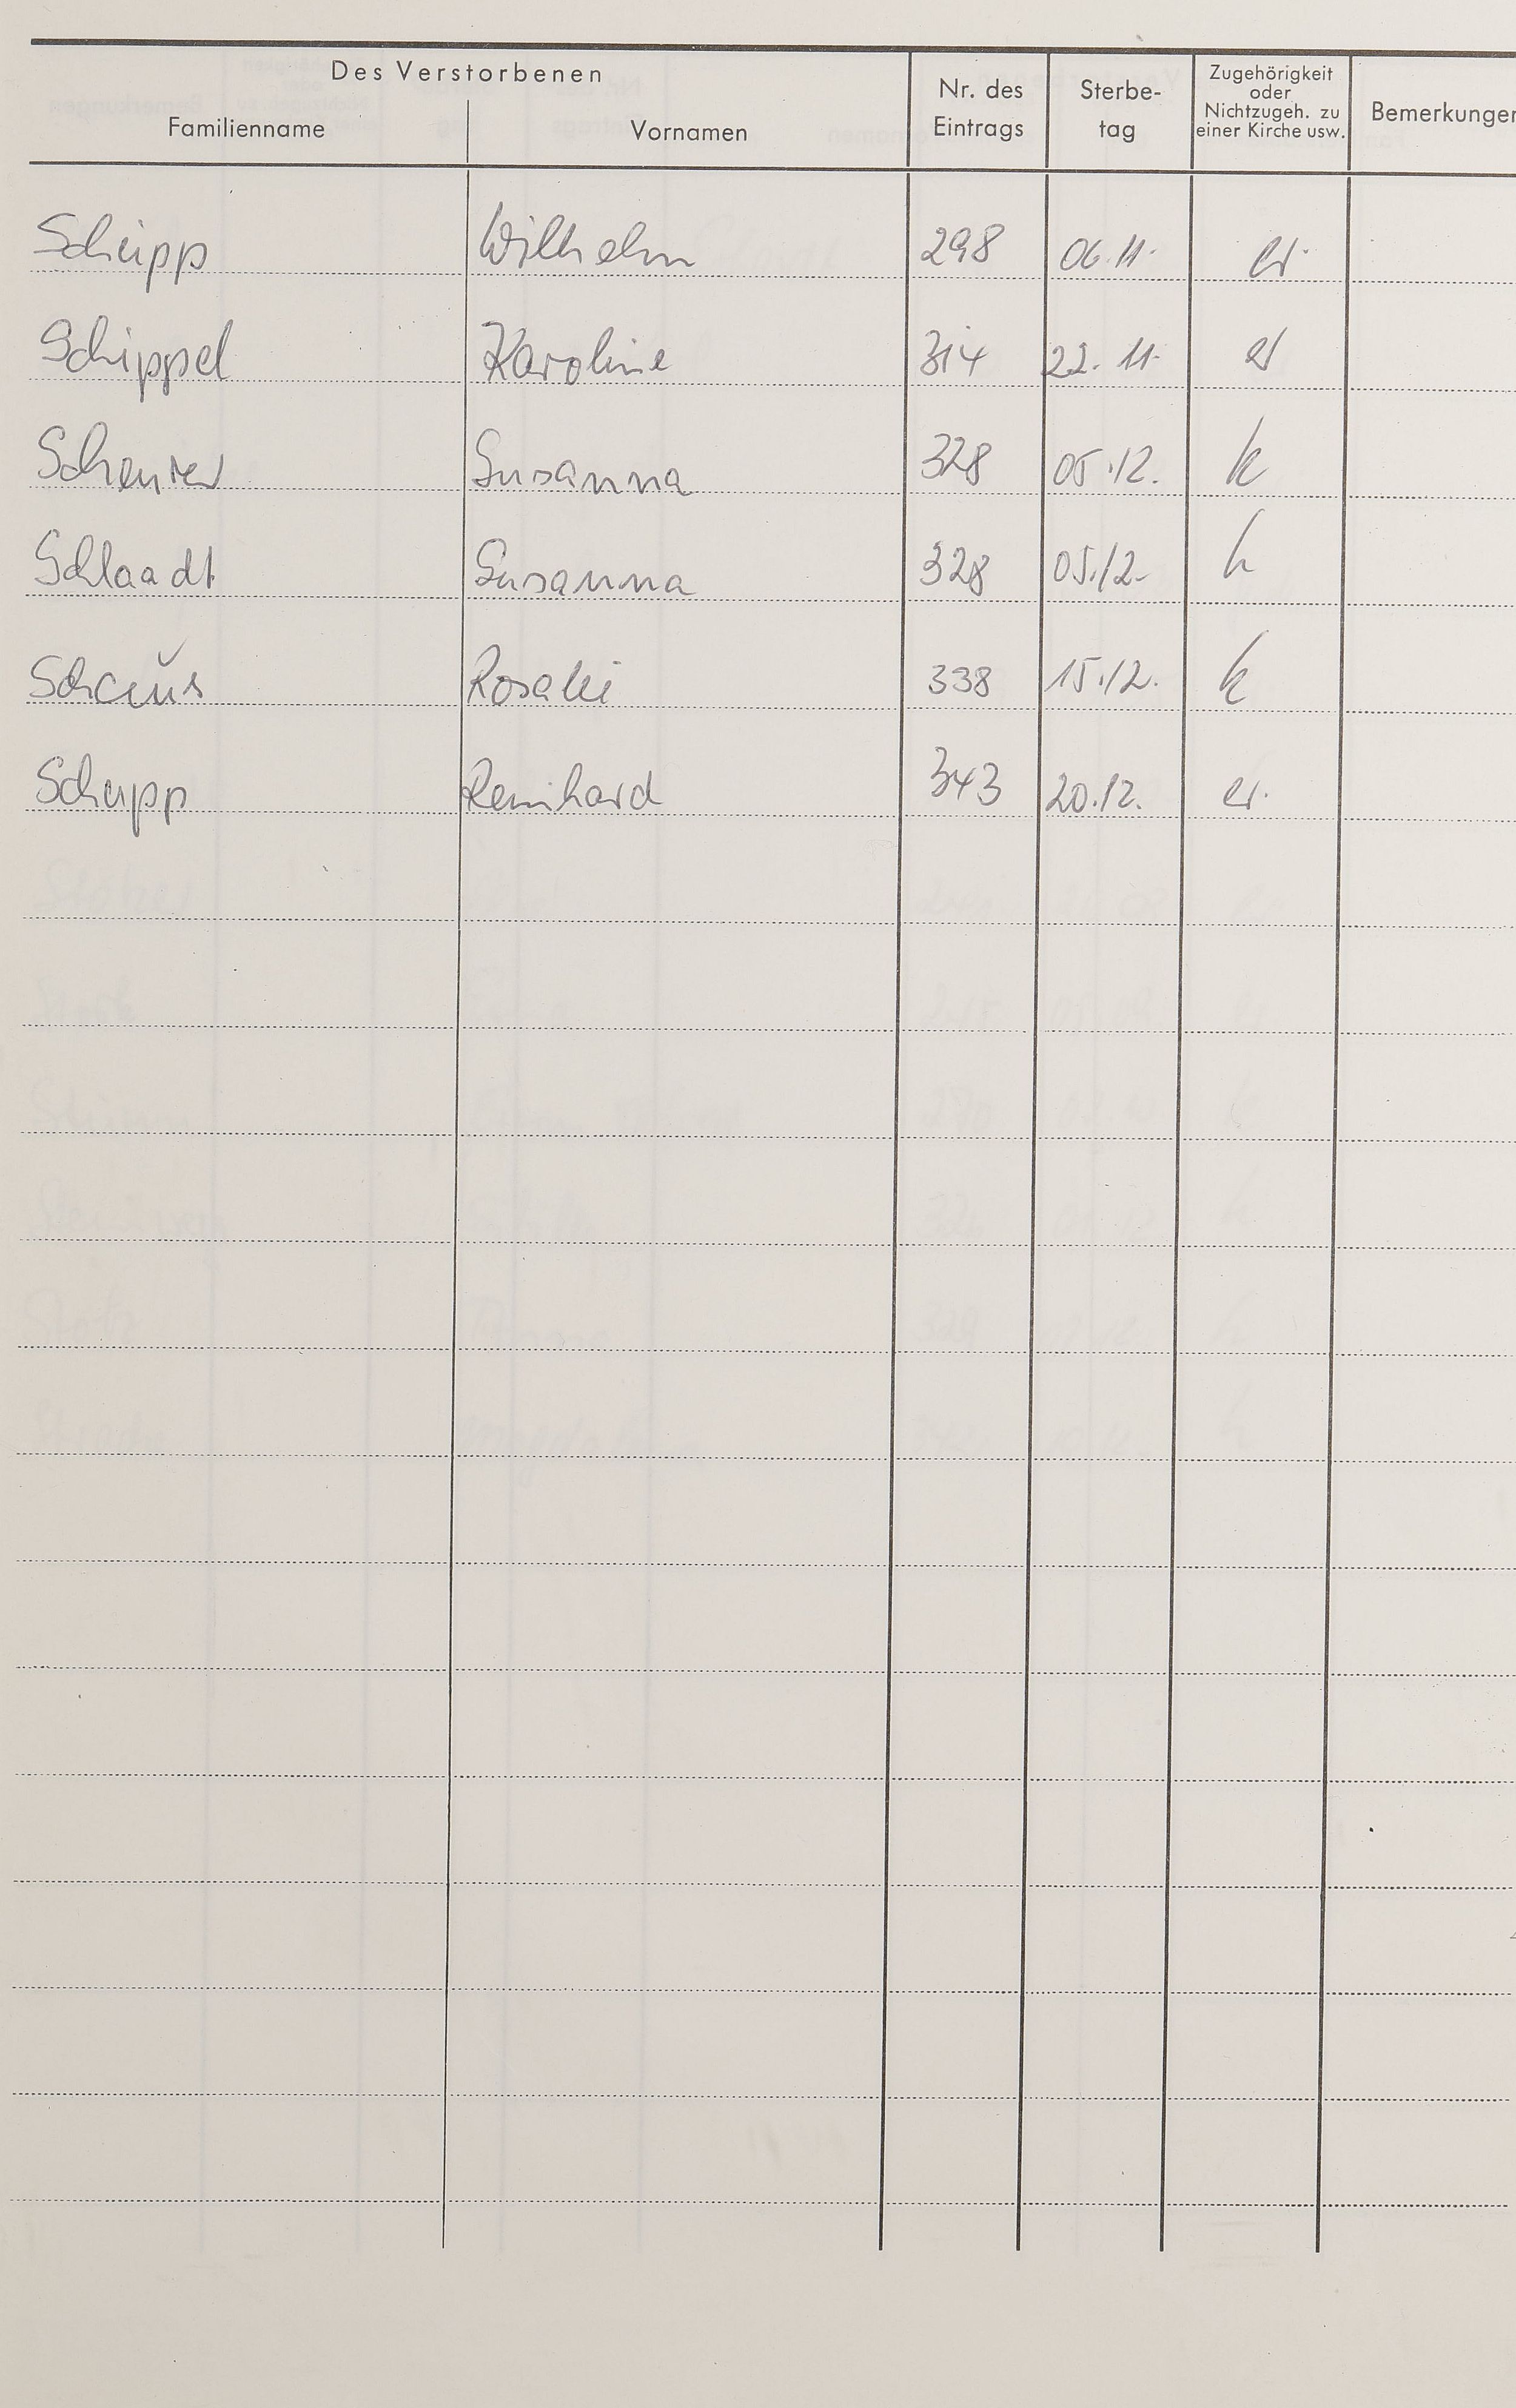 Des Verstorbenen
Familienname Vornamen Nr. des Eintrags Sterbe-tag Zugehörigkeit oder Nichtzugeh. zu einer Kirche usw. Bemerkungen
Schupp Wilhelm 298 06.11. ev.
Schippel Karoline 314 22.11. ev
Scheurer Susanna 328 05.12. k
Schlaadt Susanna 328 05.12. k
Schaus Rosalie 338 15.12. k
Schupp Reinhard 343 20.12. ev.